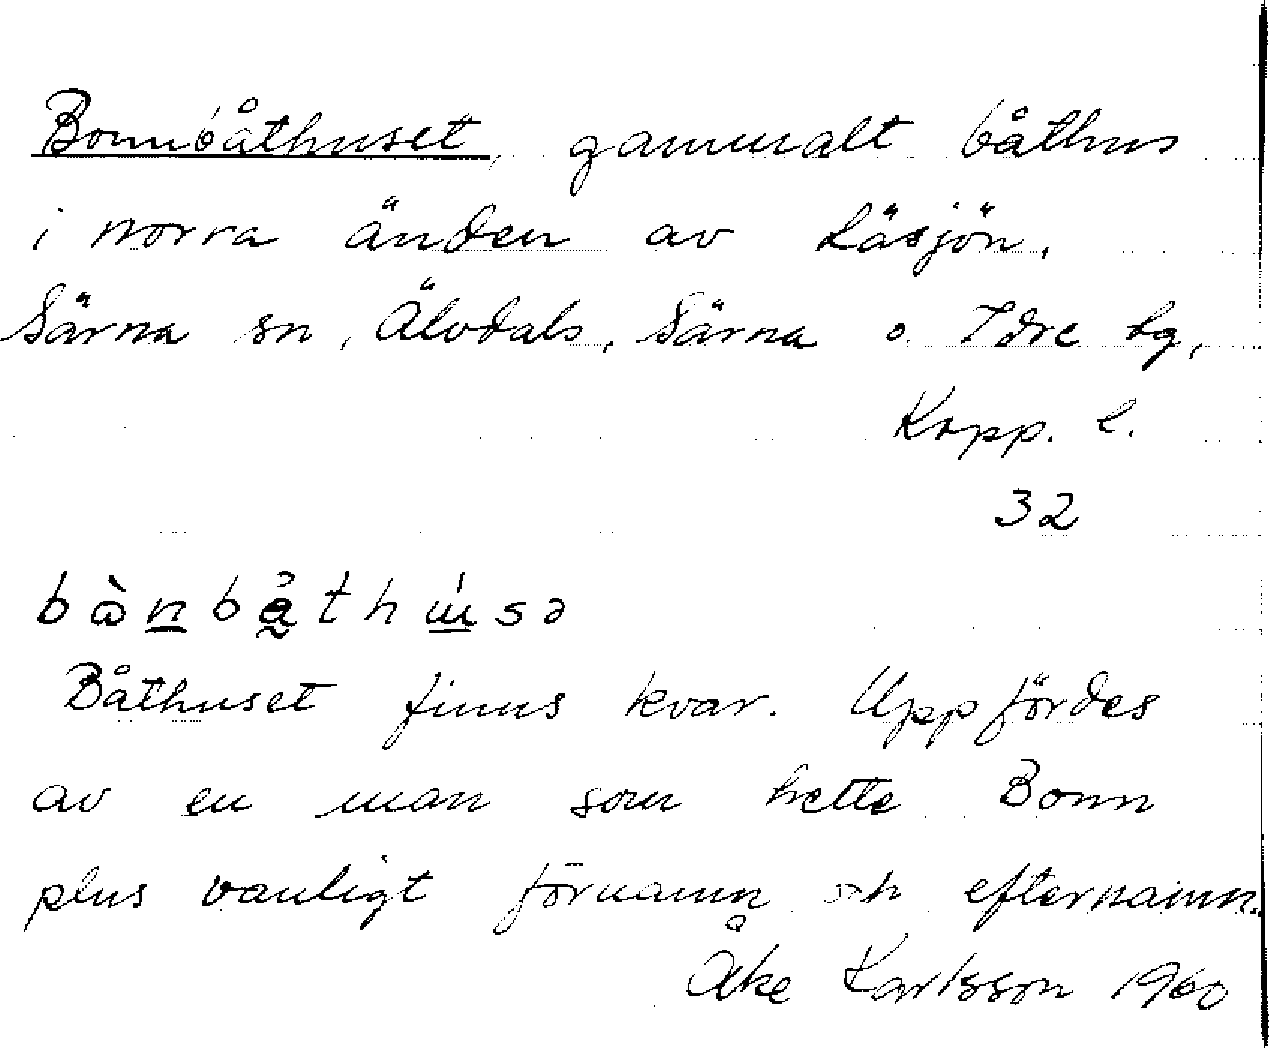 Bonnbåthuset, gammalt båthus
i norra änden av Läsjön,
Särna sn, Älvdals, Särna o. Idre lg,
Kopp. l.
32
Båthuset finns kvar. Uppfördes
av en man som hette Bonn
plus vanligt förnamn och efternamn.
Åke Karlsson 1960